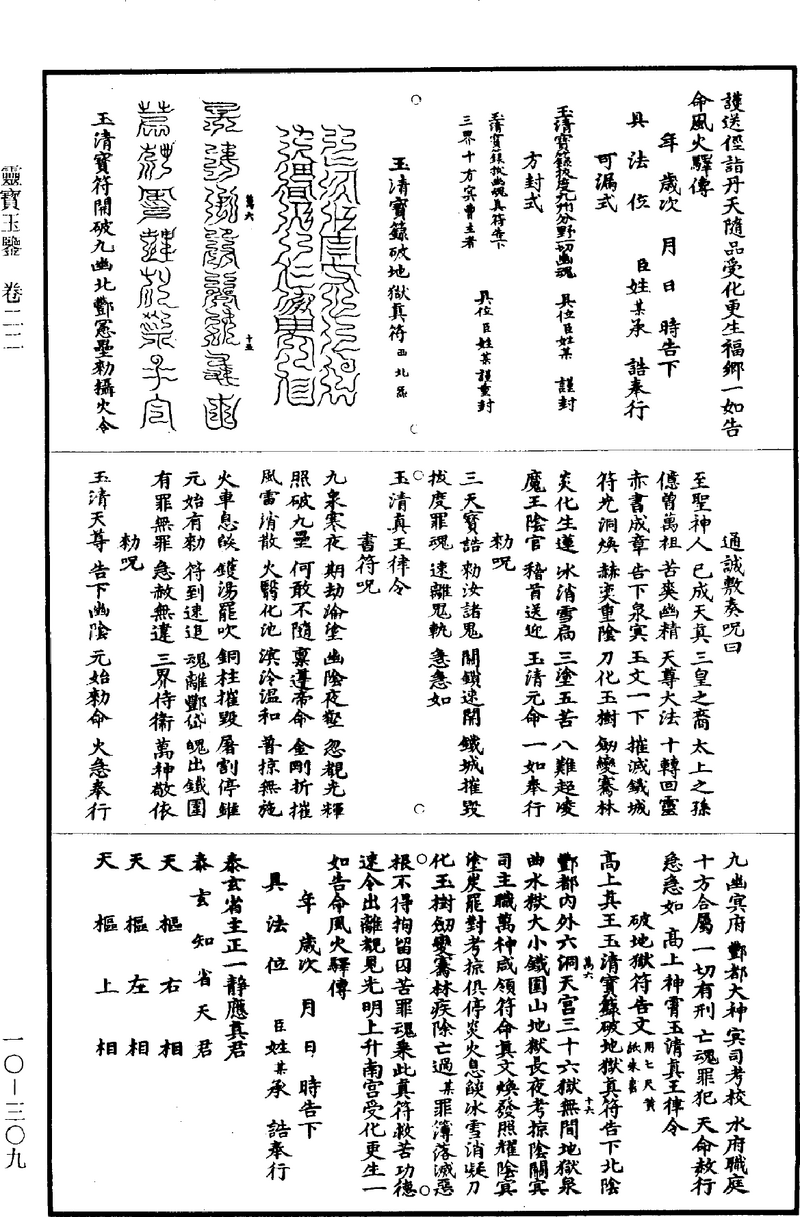 護送徑詣丹天隨品受化更生福鄉一如告
命風火驛傳
年歲次　月　日　時告下
具　法　位　臣姓某承　誥奉行
可漏式
玉清寶籙拔度九州分野一切幽魂　具位臣姓某　謹封
方封式
玉清寶籙拔幽魂真符告下
三界十方冥曹主者　具位臣姓某謹重封
玉清寶籙破地獄真符西北炁
萬六
十五
玉清寶符開破九幽北酆冤壘勑攝火令
通誠敷奏呪曰
至聖神人　已成天真　三皇之裔　太上之孫
億曾萬祖　苦爽幽精　天尊大法　十轉回靈
赤書成章　告下泉冥　玉文一下　摧滅鐵城
符光洞煥　赫奕重陰　刀化玉樹　劒變騫林
炎化生蓮　冰消雪扃　三塗五苦　八難超凌
魔王陰官　稽首送迎　玉清元命　一如奉行
勑呪
三天寶誥　勑汝諸鬼　開鎖速開　鐵城摧毀
拔度罪魂　速離鬼軌　急急如
玉清真王律令
書符呪
九泉寒夜　期劫淪塗　幽陰夜壑　忽覩光輝
照破九壘　何敢不隨　稟遵帝命　金剛折摧
風雷消散　火翳化池　溟泠溫和　普掠無施
火車息燄　鑊湯罷吹　銅柱摧毀　屠割停錐
元始有勑　符到速追　魂離酆岱　魄出鐵圍
有罪無罪　急赦無違　三界侍衛　萬神敬依
勑呪
玉清天尊　告下幽陰　元始勑命　火急奉行
九幽冥府　酆都大神　冥司考校　水府職庭
十方合屬　一切有刑　亡魂罪犯　天命赦行
急急如　高上神霄玉清真王律令
破地獄符告文用七尺黃紙朱書
高上真王玉清寶籙破地獄真符告下北陰
萬六
十六
酆都內外六洞天宮三十六獄無間地獄泉
曲水獄大小鐵圍山地獄長夜考掠陰關冥
司主職萬神咸領符命真文煥發照耀陰冥
塗炭罷對考掠俱停炎火息燄冰雪消凝刀
化玉樹劒變騫林疾除亡過某罪簿落滅惡
根不得拘留囚苦罪魂乘此真符救苦功德
速令出離覩見光明上升南宮受化更生一
如告命風火驛傳
年歲次　月　日　時告下
具　法　位　臣姓某承　誥奉行
泰玄省主正一靜應真君
泰玄知省天君
天樞右相
天樞左相
天樞上相
靈寶玉鑒　卷二二
一〇—三〇九